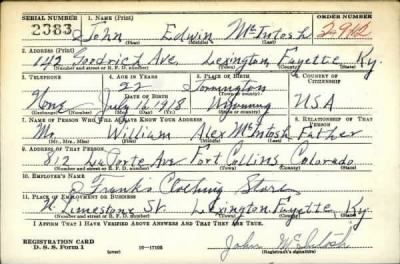 SERIAL NUMBER 1. NAME (Print) ORDER NUMBER
2383 John Edwin McIntosh
2. ADDRESS (Print)
142 Goodrich Ave. Lexington Fayette Ky.
(Number and street or R. F. D. number) (Town) (County) (State)
3. TELEPHONE 4. AGE IN YEARS 5. PLACE OF BIRTH 6. COUNTRY OF CITIZENSHIP
22 Torrington
DATE OF BIRTH
None July 16 1918 Wyoming USA
7. NAME OF PERSON WHO WILL ALWAYS KNOW YOUR ADDRESS 8. RELATIONSHIP OF THAT PERSON
Mr. William Alex McIntosh Father
(Mr., Mrs., Miss) (First) (Middle) (Last)
9. ADDRESS OF THAT PERSON
812 LaPorte Ave Fort Collins, Colorado
(Number and street or R. F. D. number) (Town) (County) (State)
10. EMPLOYER'S NAME
Franks Clothing Store
11. PLACE OF EMPLOYMENT OR BUSINESS
N. Limestone St. Lexington, Fayette, Ky.
(Number and street or R. F. D. number) (Town) (County) (State)
I AFFIRM THAT I HAVE VERIFIED ABOVE ANSWERS AND THAT THEY ARE TRUE.
REGISTRATION CARD
D. S. S. Form 1 (over) 16—17105 John McIntosh
(Registrant's signature)